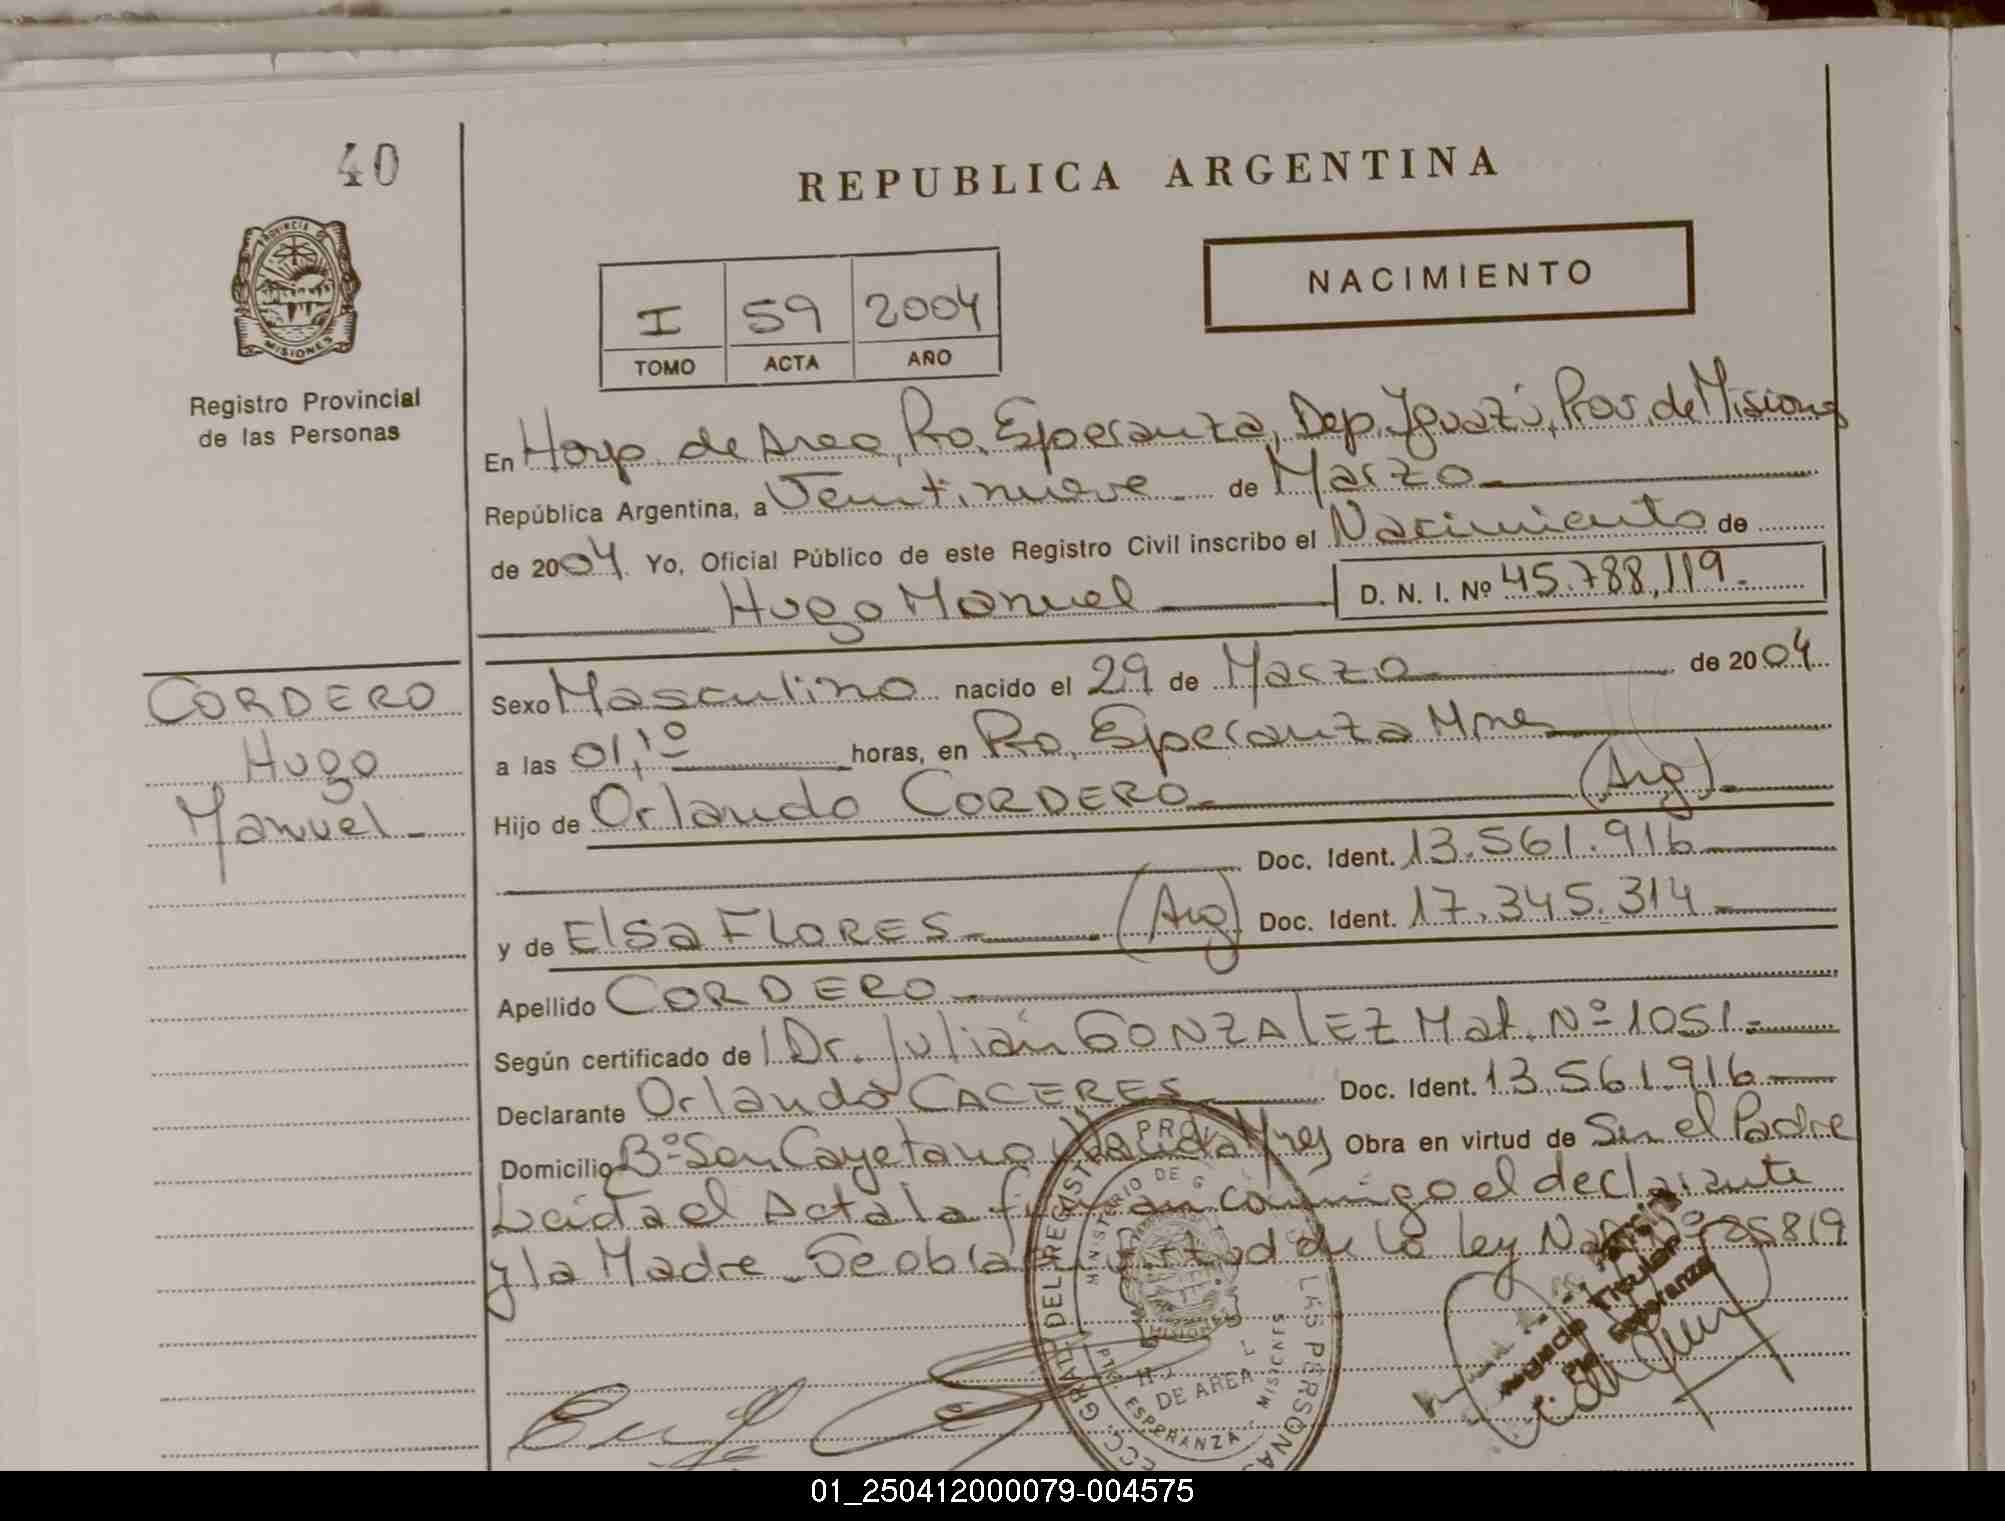 40
REPUBLICA ARGENTINA
NACIMIENTO
I 59 2004
TOMO ACTA AÑO
PROVINCIA DE
MISIONES
Registro Provincial
de las Personas
En Hosp. de Area, Pto. Esperanza, Dep. Iguazú, Prov. de Misiones
República Argentina, a Veintinueve de Marzo
de 2004. Yo, Oficial Público de este Registro Civil inscribo el Nacimiento de
Hugo Manuel D. N. I. Nº 45.788.119.
CORDERO
Hugo
Manuel
Sexo Masculino nacido el 29 de Marzo de 2004
a las 01,10 horas, en Pto. Esperanza Mnes
Hijo de Orlando CORDERO (Arg)
Doc. Ident. 13.561.916
y de Elsa FLORES (Arg) Doc. Ident. 17.345.314
Apellido CORDERO
Según certificado de Dr. Julián GONZALEZ Mat. Nº 1051
Declarante Orlando CACERES Doc. Ident. 13.561.916
Domicilio Bº San Cayetano Mnes Obra en virtud de Ser el Padre
Leida el Acta la firman conmigo el declarante
y la Madre. Se obra en virtud de la ley Nac. Nº 25819
GRAL DEL REGISTRO PROV. LAS PERSONAS
MINISTERIO DE G
MISIONES
DE AREA
ESPERANZA - MISIONES
Titular
Esperanza
01_250412000079-004575